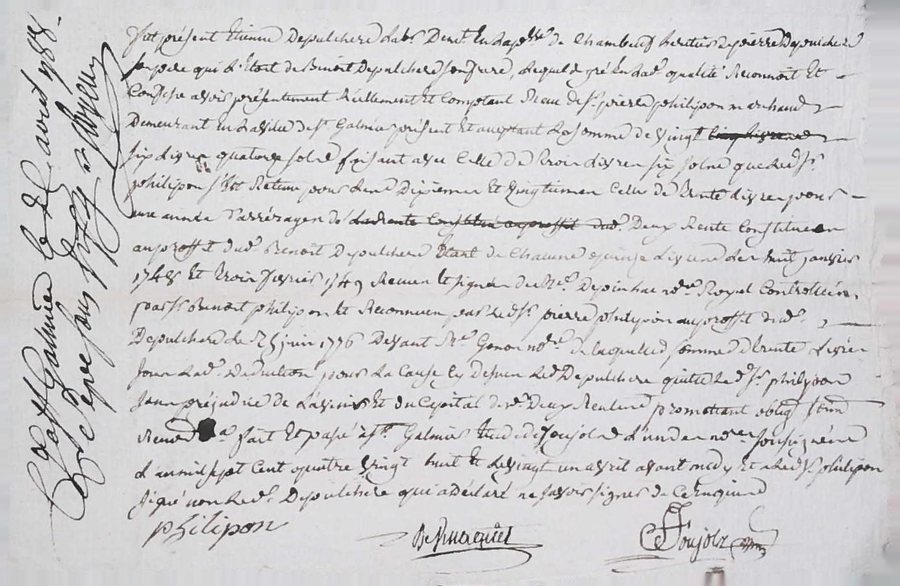 fut présent Etienne Depulchere Labr Demt En la psse de Chambeuf heritier de pierre Depulchere
son pere qui L'Etoit de Benoit Depulchere son frere, Lequel de gré En lade qualité Reconnoit Et
Confesse avoir présentement Réellement Et Comptant Receu de sr pierre philipon marchand
Demeurant En la ville de st Galmier présent Et acceptant La somme de vingt
six livres quatorze sols faisant avec Celle de Trois livres six sols que led sr
philipon a Retenu pour Les Dixiemes Et vingtiemes Celle de trente livres pour
une année D'arrérages de la rente Constituée au proffit dud Deux Rente Constituées
au proffit dud Benoit Depulchere Etant de Chacune quinze Livres Les huit janvier
1748 Et trois fevrier 1749 Receues Et signées de Me Depinhac nore Royal Controllées
par sr Benoit philipon Et Reconnues par led sr pierre philipon au proffit dud
Depulchere Le 25 juin 1776 Devant Me Gonon nore de laquelle somme de trente Livres
sous lad Deduction pour La Cause Cy dessus Led Depulchere quitte Led sr philipon
sans préjudice de L'avenir Et du Capital desd Deux Rentes promettant oblig
Renonc fait Et passé a st Galmier Etude de Soujols L'un des nores soussignés
L'an mil sept Cent quatre vingt huit Et Le vingt un avril avant midy Et a Led sr philipon
signé non Led Depulchere qui a Déclaré ne savoir signer de Ce Enquis
philipon
Soujols
St Galmier le avril 1788
Reçu sols